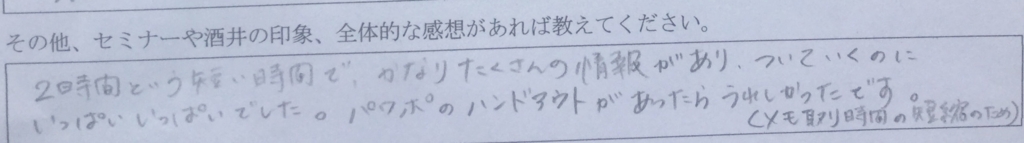 その他、セミナーや酒井の印象、全体的な感想があれば教えてください。
2時間という短い時間で、かなりたくさんの情報があり、ついていくのに
いっぱいいっぱいでした。パワポのハンドアウトがあったらうれしかったです。
(メモ取り時間の短縮のため)